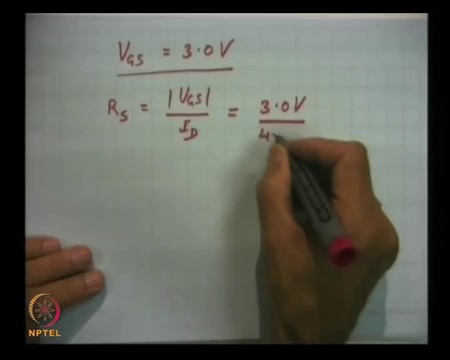 V_GS = 3.0 V
R_S = |V_GS| / I_D = 3.0 V / 4
NPTEL